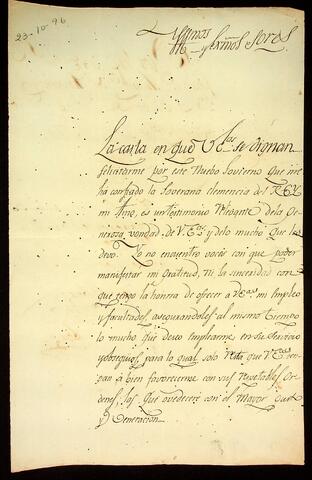 23-10-96
Yllmos
y exmos Sores.
La carta en que V. Eas. se dignan
felicitarme por este Nuebo Govierno que me
ha confiado la Soverana clemencia del REY
mi Amo, es un testimonio Eloquente de la Ge-
nerosa vondad de V. Eas. y de lo mucho que les
devo. Yo no encuentro voces con que poder
manifestar mi Gratitud, ni la sinceridad con
que tengo la honrra de ofrecer a V. Eas. mi Empleo
y facultades asegurandoles al mismo tiempo
lo mucho que deseo emplearme en su Servicio
y obsequios, para lo qual solo resta que V. Eas. ten-
gan á bien favorecerme con sus Respetables Or-
denes, las que ovedeceré con el Mayor Gusto
y Veneracion.